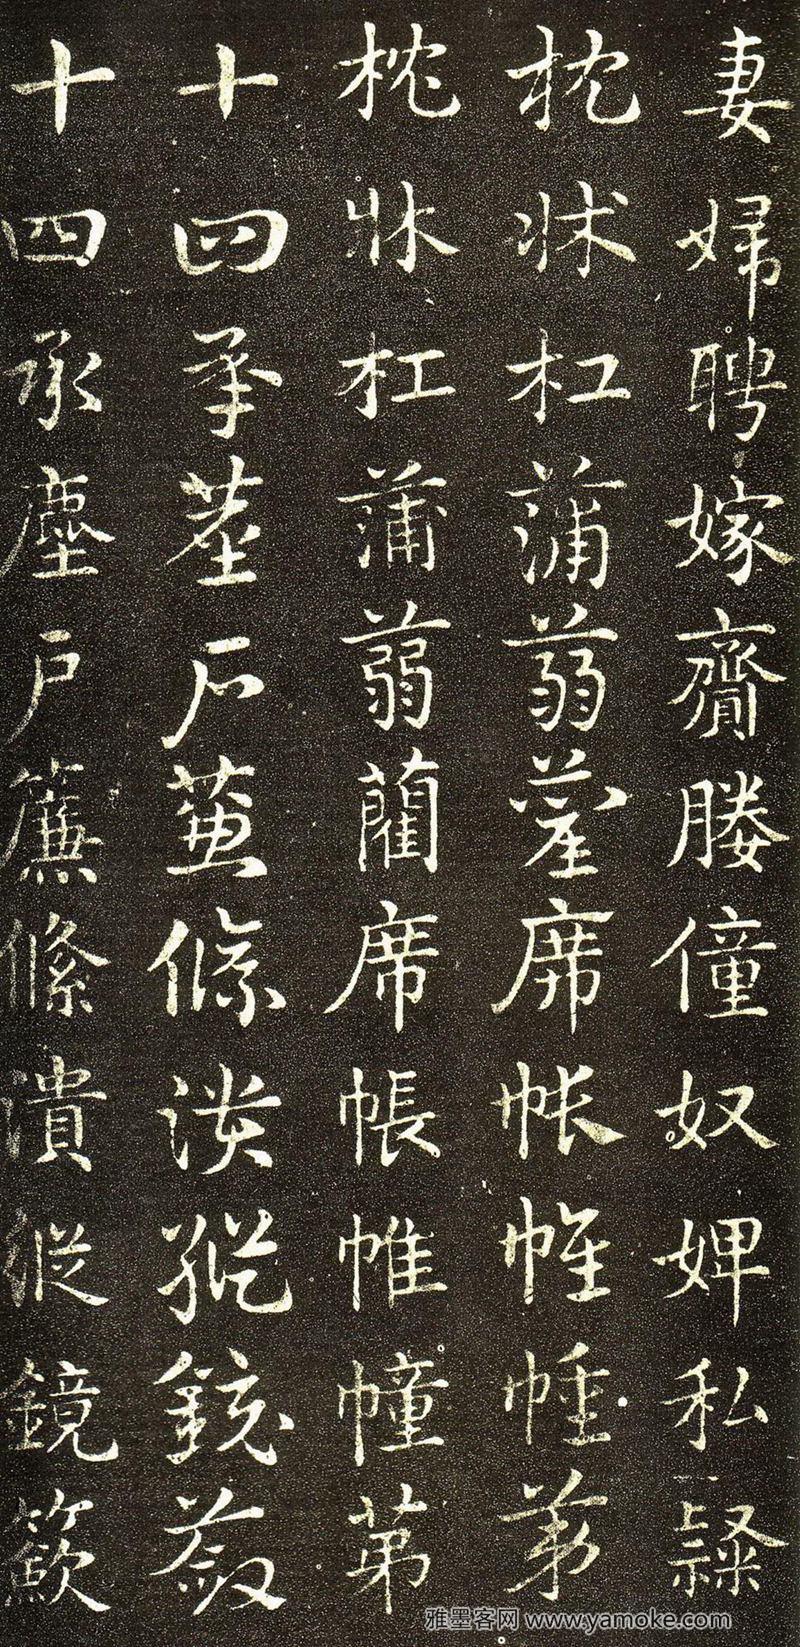 妻婦聘嫁齎媵僮奴婢私隸
枕牀杠蒲蒻藺席帳帷幢第
枕牀杠蒲蒻藺席帳帷幢第
十四承塵戶簾絛潰縱鏡籢
十四承塵戶簾絛潰縱鏡籢
雅墨客网 www.yamoke.com